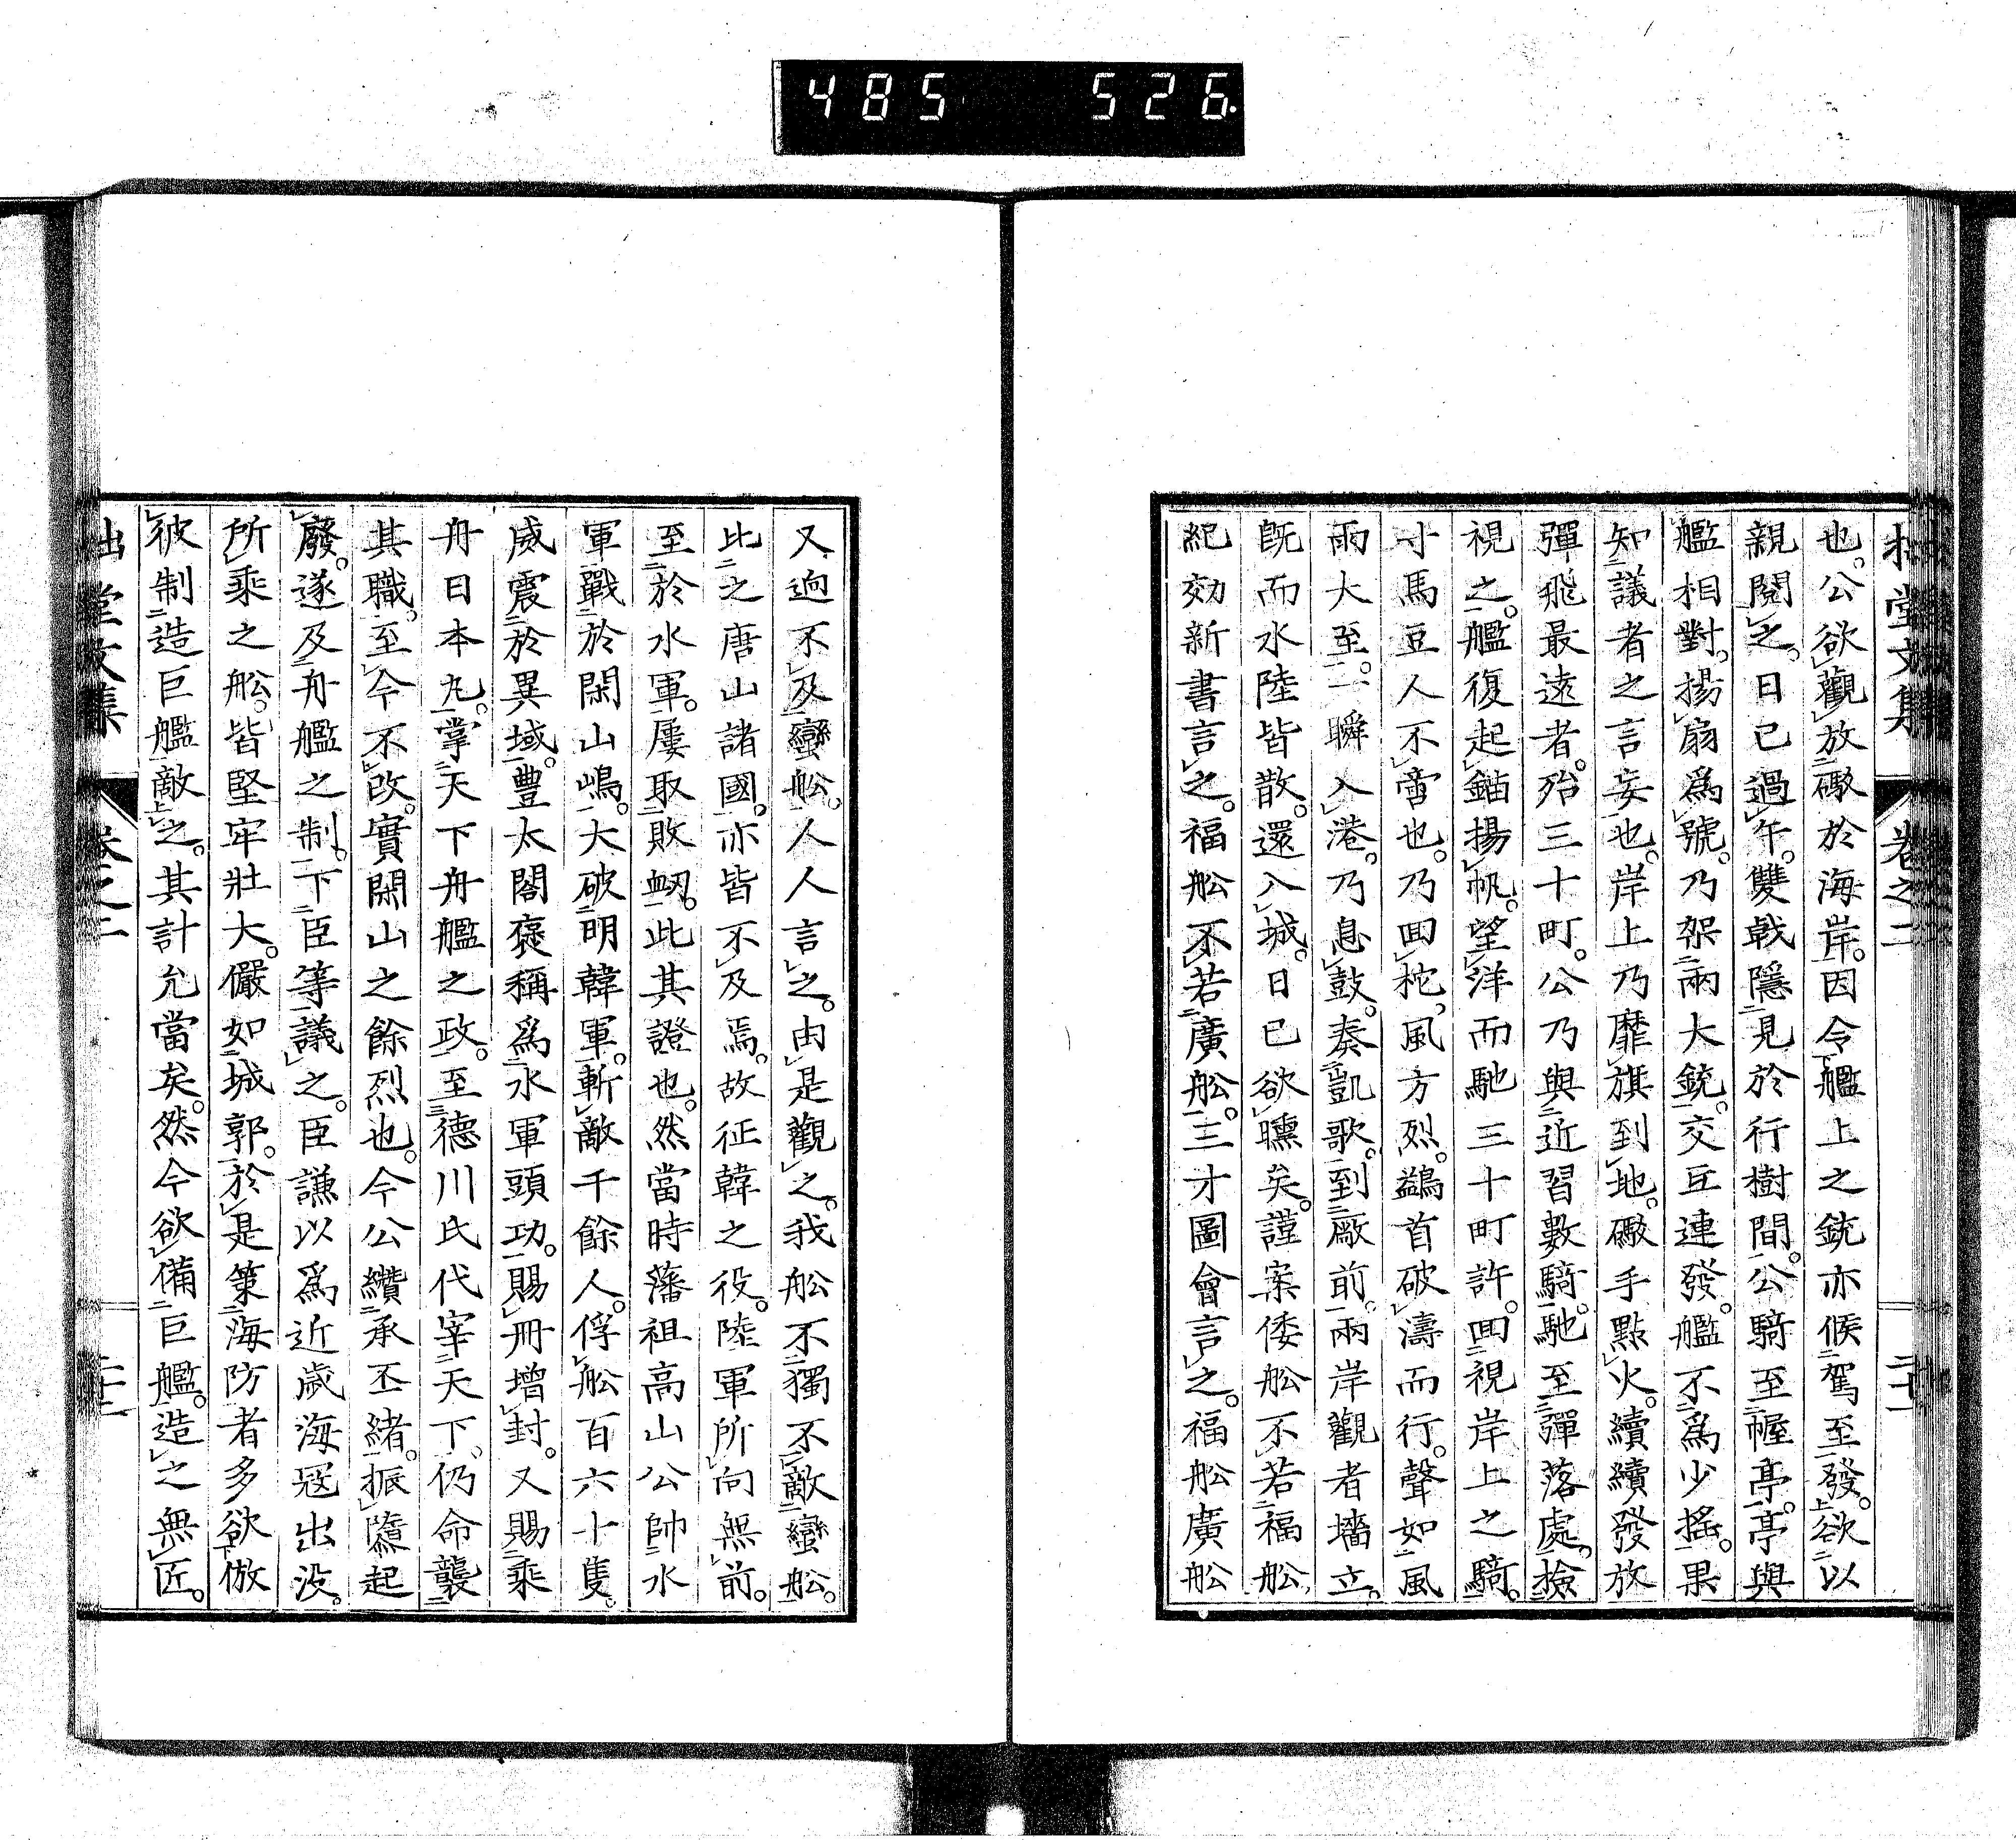 485 526
拙堂文集 卷之二 二十一
也。公欲觀放礮於海岸。因令艦上之銃亦候駕至發。欲以
親閱之。日已過午。雙戟隱見於行樹間。公騎至幄亭。亭與
艦相對。揚扇爲號。乃架兩大銃。交互連發。艦不爲少搖。果
知議者之言妄也。岸上乃靡旗到地。礮手點火。續續發放
彈飛最遠者。殆三十町。公乃與近習數騎。馳至彈落處。撿
視之。艦復起錨揚帆。望洋而馳三十町許。回視岸上之騎。
寸馬豆人不啻也。乃回柁。風方烈。鷁首破濤而行。聲如風
雨大至。一瞬入港。乃息鼓。奏凱歌。到廠前。兩岸觀者墻立。
既而水陸皆散。還入城。日已欲曛矣。謹案倭舩不若福舩
紀効新書言之。福舩不若廣舩。三才圖會言之。福舩廣舩
又逈不及蠻舩。人人言之。由是觀之。我舩不獨不敵蠻舩。
比之唐山諸國。亦皆不及焉。故征韓之役。陸軍所向無前。
至於水軍。屢取敗衂。此其證也。然當時藩祖高山公帥水
軍戰於閑山嶋。大破明韓軍。斬敵千餘人。俘舩百六十隻。
威震於異域。豐太閤褒稱爲水軍頭功。賜冊增封。又賜乘
舟日本丸。掌天下舟艦之政。至德川氏代宰天下。仍命襲
其職。至今不改。實閑山之餘烈也。今公纘承丕緒。振隳起
廢。遂及舟艦之制。下臣等議之。臣謙以爲近歲海冦出沒。
所乘之舩。皆堅牢壯大。儼如城郭。於是策海防者多欲倣
彼制造巨艦敵之。其計允當矣。然今欲備巨艦。造之無匠。
拙堂文集 卷之二